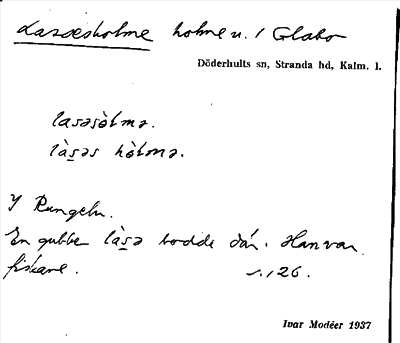 Lassesholme holme u. / Glabo
Döderhults sn, Stranda hd, Kalm. l.
lasəsòlmə.
là̱səs hòlmə.
I Rungeln.
En gubbe là̱sə bodde där. Han var
fiskare. 126.
Ivar Modéer 1937